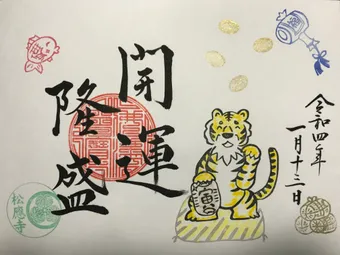 開運
隆盛
令和四年
一月十三日
寅
松應寺